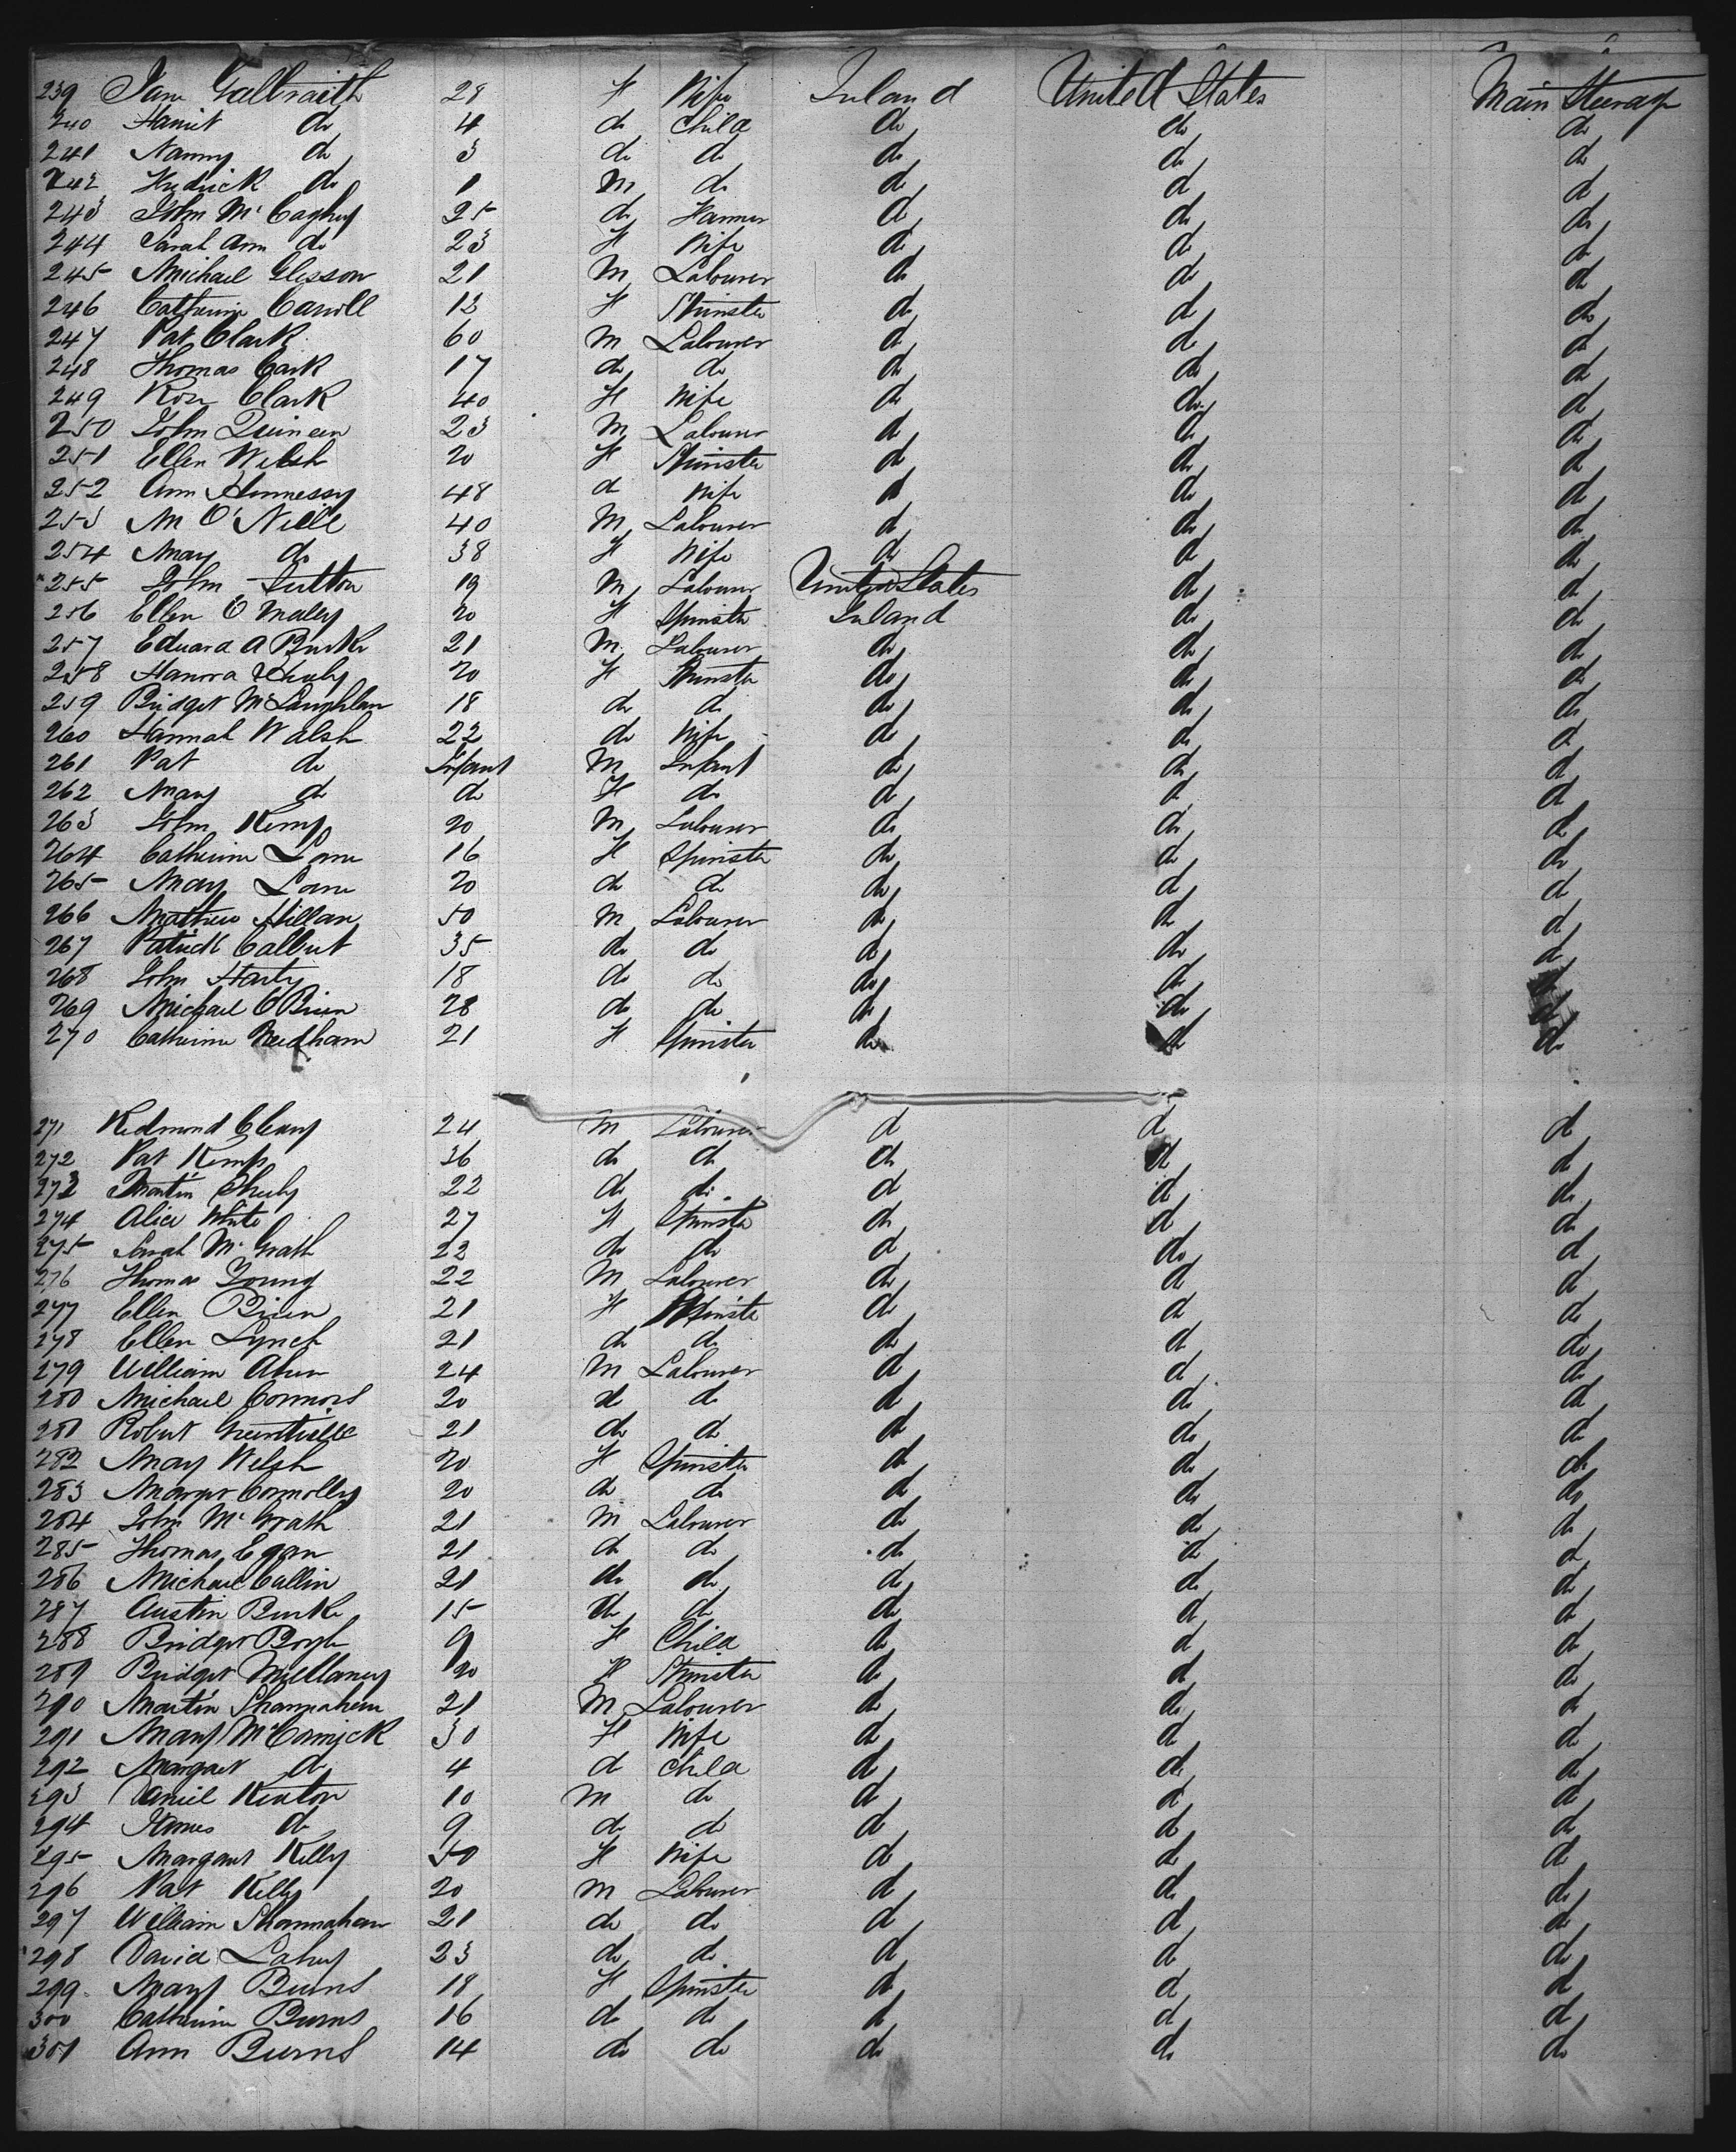 239 Jane Galbraith 28 F Wife Ireland United States Main Steerage
240 Harriet do 4 do Child do do do
241 Nanny do 3 do do do do do
242 Fredrick do 1 M do do do do
243 John McCaghey 25 do Farmer do do do
244 Sarah Ann do 23 F Wife do do do
245 Michael Glesson 21 M Labourer do do do
246 Catherine Carroll 13 F Spinster do do do
247 Pat Clark 60 M Labourer do do do
248 Thomas Cark 17 do do do do do
249 Rose Clark 40 F Wife do do do
250 John Quineen 23 M Labourer do do do
251 Ellen Welsh 20 F Spinster do do do
252 Ann Hennessy 48 do Wife do do do
253 M O'Neill 40 M Labourer do do do
254 Mary do 38 F Wife do do do
255 John Sutton 19 M Labourer United States do do
256 Ellen O'Malley 20 F Spinster Ireland do do
257 Edward A Burke 21 M Labourer do do do
258 Hanora 20 F Spinster do do do
259 Bridget McLaughlan 18 do do do do do
260 Hannah Walsh 22 do Wife do do do
261 Pat do Infant M Infant do do do
262 Mary do do F do do do do
263 John Kemp 20 M Labourer do do do
264 Catherine Lane 16 F Spinster do do do
265 Mary Lane 20 do do do do do
266 Mathew Hillan 50 M Labourer do do do
267 Patrick Calbert 35 do do do do do
268 John Harty 18 do do do do do
269 Michael O'Brien 28 do do do do do
270 Catherine Needham 21 F Spinster do do do
271 Redmond Cleary 24 M Labourer do do do
272 Pat Kemp 36 do do do do do
273 Martin Sheehy 22 do do do do do
274 Alice White 27 F Spinster do do do
275 Sarah McGrath 22 do do do do do
276 Thomas Young 22 M Labourer do do do
277 Ellen Brien 21 F Spinster do do do
278 Ellen Lynch 21 do do do do do
279 William Ahern 24 M Labourer do do do
280 Michael Connors 20 do do do do do
281 Robert 21 do do do do do
282 Mary Welsh 20 F Spinster do do do
283 Margret Connolly 20 do do do do do
284 John McGrath 21 M Labourer do do do
285 Thomas Egan 21 do do do do do
286 Michael Callin 21 do do do do do
287 Austin Burke 15 do do do do do
288 Bridget 9 F Child do do do
289 Bridget Mullaney 20 F Spinster do do do
290 Martin Shannahan 21 M Labourer do do do
291 Mary McCormick 30 F Wife do do do
292 Margaret do 4 do Child do do do
293 Daniel Keaton 10 M do do do do
294 James do 9 do do do do do
295 Margaret Kelly 50 F Wife do do do
296 Pat Kelly 20 M Labourer do do do
297 William Shannahan 21 do do do do do
298 David Lahey 23 do do do do do
299 Mary Burns 18 F Spinster do do do
300 Catherine Burns 16 do do do do do
301 Ann Burns 14 do do do do do